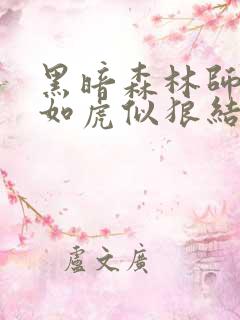 黑暗森林師
如虎似狠結
盧文廣